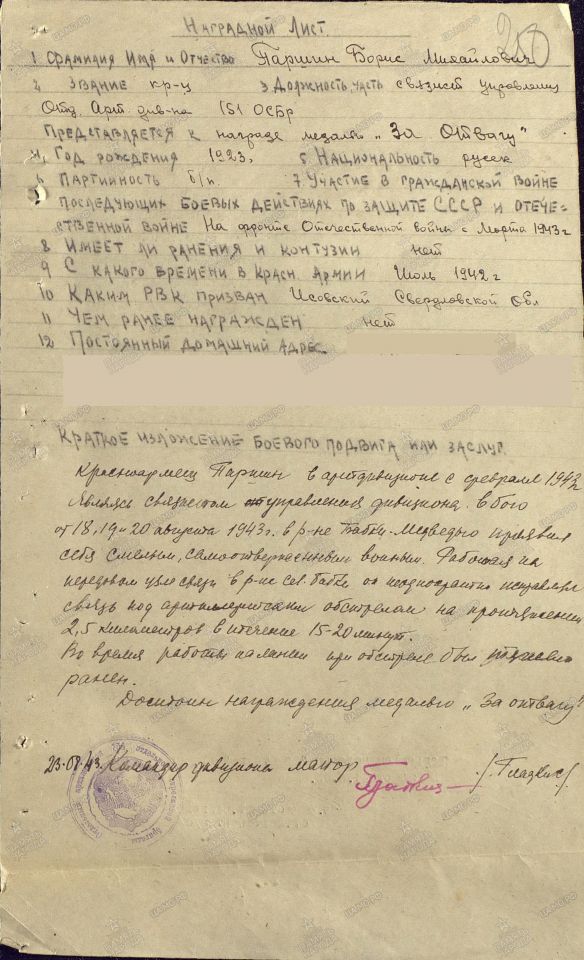 Наградной Лист
1 Фамилия Имя и Отчество Паршин Борис Михайлович
2 Звание кр-ц 3 Должность, часть связист управления
Отд. Арт. див-на 151 ОСБр
Представляется к награде медаль "За Отвагу"
4. Год рождения 1923, 5. Национальность русск
6 Партийность б/п. 7. Участие в гражданской войне
последующих боевых действиях по защите СССР и отече-
ственной войне На фронте Отечественной войны с Марта 1943 г
8 Имеет ли ранения и контузии нет
9 С какого времени в Красн. Армии Июль 1942 г
10 Каким РВК призван Исовский Свердловской Обл
11 Чем ранее награжден нет
12 Постоянный домашний адрес
Краткое изложение боевого подвига или заслуг
Красноармеец Паршин в артдивизионе с февраля 1943
Являясь связистом управления дивизиона. В бою
от 18, 19 и 20 августа 1943 г. в р-не Бабки-Медведью проявил
себя смелым, самоотверженным воином. Работая на
передовом узле связи в р-не сев. Бабки он неоднократно исправлял
связь под артиллерийским обстрелом на протяжении
2,5 километров в течение 15-20 минут.
Во время работы на линии при обстреле был
ранен.
Достоин награждения медалью "За отвагу"
23.08.43. Командир дивизиона майор /Гладвис/